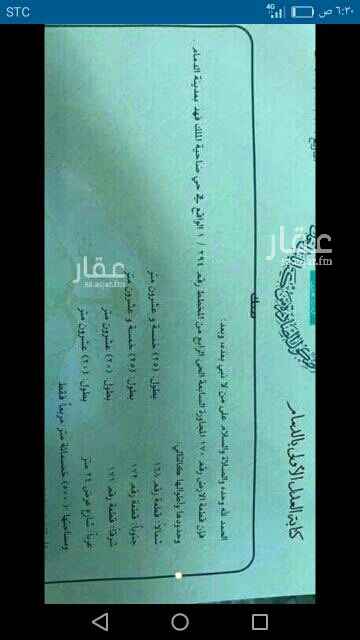 STC
4G
٦:٣٠ ص
كتابة العدل الأولى بالدمام
صك
الحمد لله وحده والصلاة والسلام على من لا نبي بعده، وبعد:
فإن قطعة الارض رقم ١٧٠ المجاورة السابعة الحي الرابع من المخطط رقم ٢٩٤ / ١ الواقع في حي ضاحية الملك فهد بمدينة الدمام .
وحدودها وأطوالها كالتالي:
شمالاً: قطعة رقم ١٦٨ بطول: (٢٥) خمسة و عشرون متر
جنوباً: قطعة رقم ١٧٢ بطول: (٢٥) خمسة و عشرون متر
شرقاً: قطعة رقم ١٧١ بطول: (٢٠) عشرون متر
غرباً: شارع عرض ٢٤ متر بطول: (٢٠) عشرون متر
ومساحتها (٥٠٠) خمسمائة متر مربعاً فقط
عقار
sa.aqar.fm
عقار
sa.aqar.fm